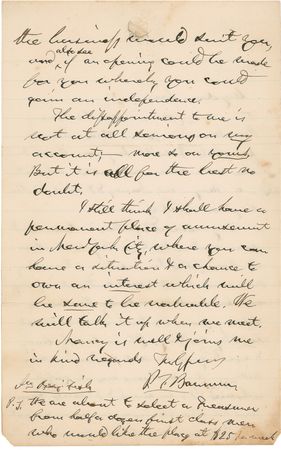 the business would suit you,
also see
and, if an opening could be made
for you whereby you could
gain an independence.
The disappointment to me is
not at all serious on my
account, more so on yours,
But it is all for the best no
doubt.
I still think I shall have a
permanent place of amusement
in New York City, where you can
have a situation & a chance to
own an interest which will
be sure to be valuable. We
will talk it up when we meet.
Nancy is well & joins me
in kind regards
P. T. Barnum
P.S. We are about to select a Treasurer
from half a dozen first class men
who would like the place at $25 per week